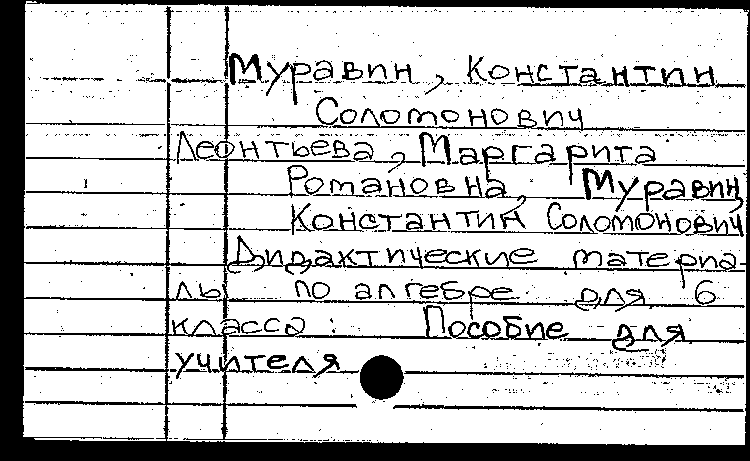 Муравин, Константин
Соломонович
Леонтьева, Маргарита
Романовна, Муравин,
Константин Соломонович
Дидактические материа-
лы по алгебре для 6
класса: Пособие для
учителя